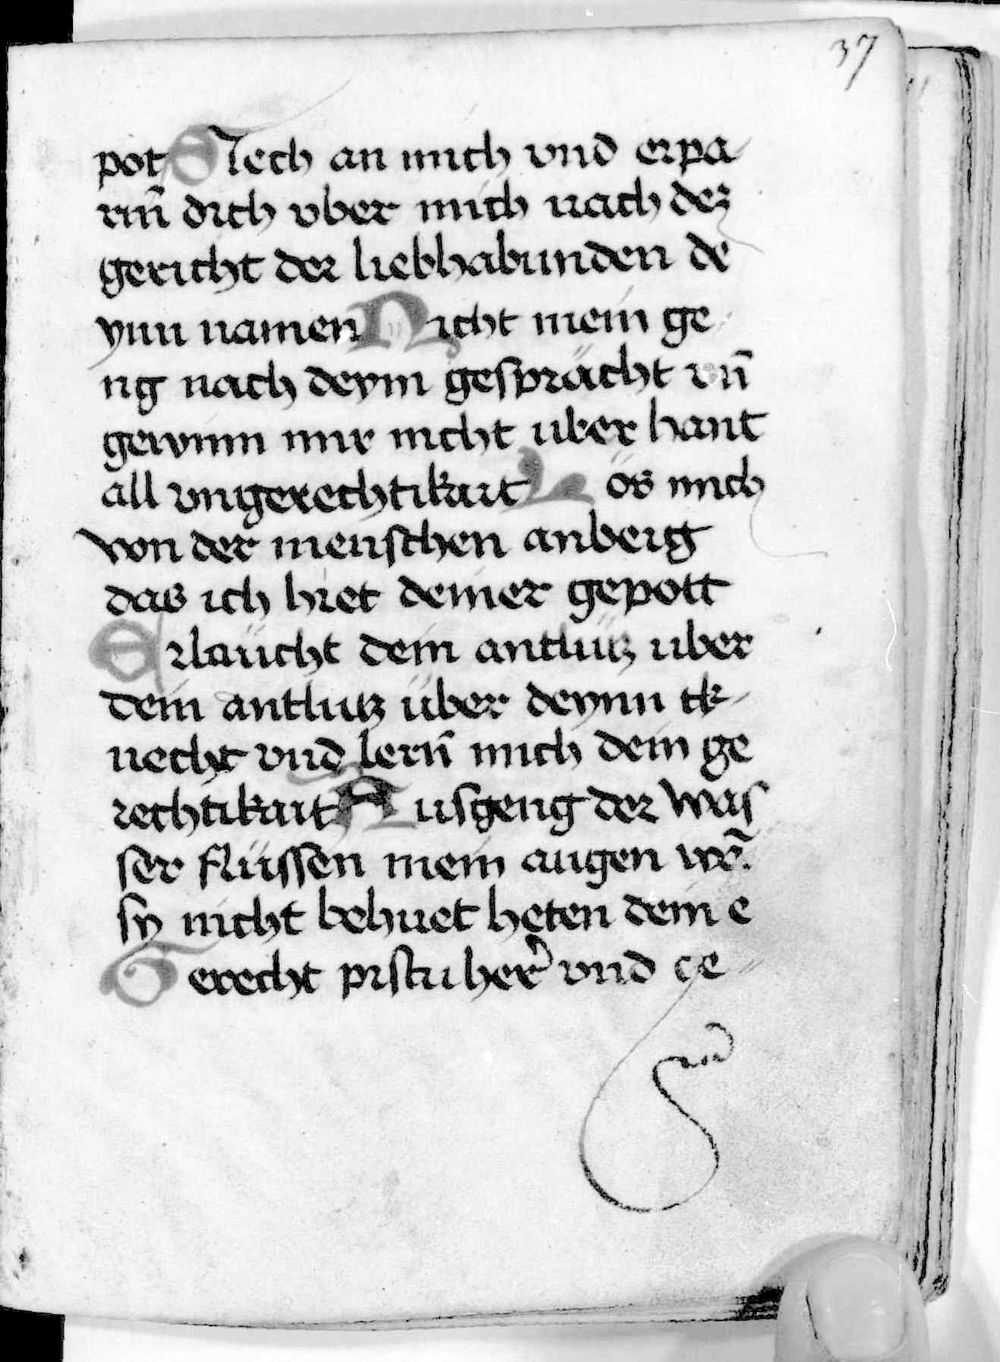 37
pot Siech an mich vnd erpa
rm̄ dich vber mich nach dez
gericht der liebhabunden de
ynn namen Nicht mein ge
ng nach deym gesprächt vn̄
gewinn mir nicht uber hant
all vngerechtikait Lös mich
von der menschen anberg
das ich hiet deiner gepott
Erlaücht dein antlütz uber
dein antlutz über deynn ck
necht vnd lern̄ mich dein ge
rechtikait Ausgeng der was
ser flüssen mein augen we͂
sy nicht behuet heten dein e
Gerecht pistu her͛ vnd ge